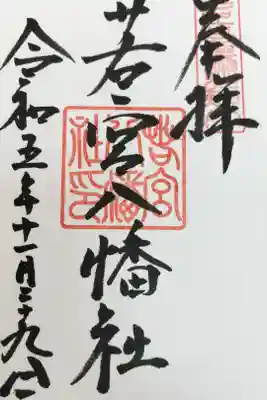 奉拝
若宮八幡社
若宮八幡社印
令和五年十一月二十九日